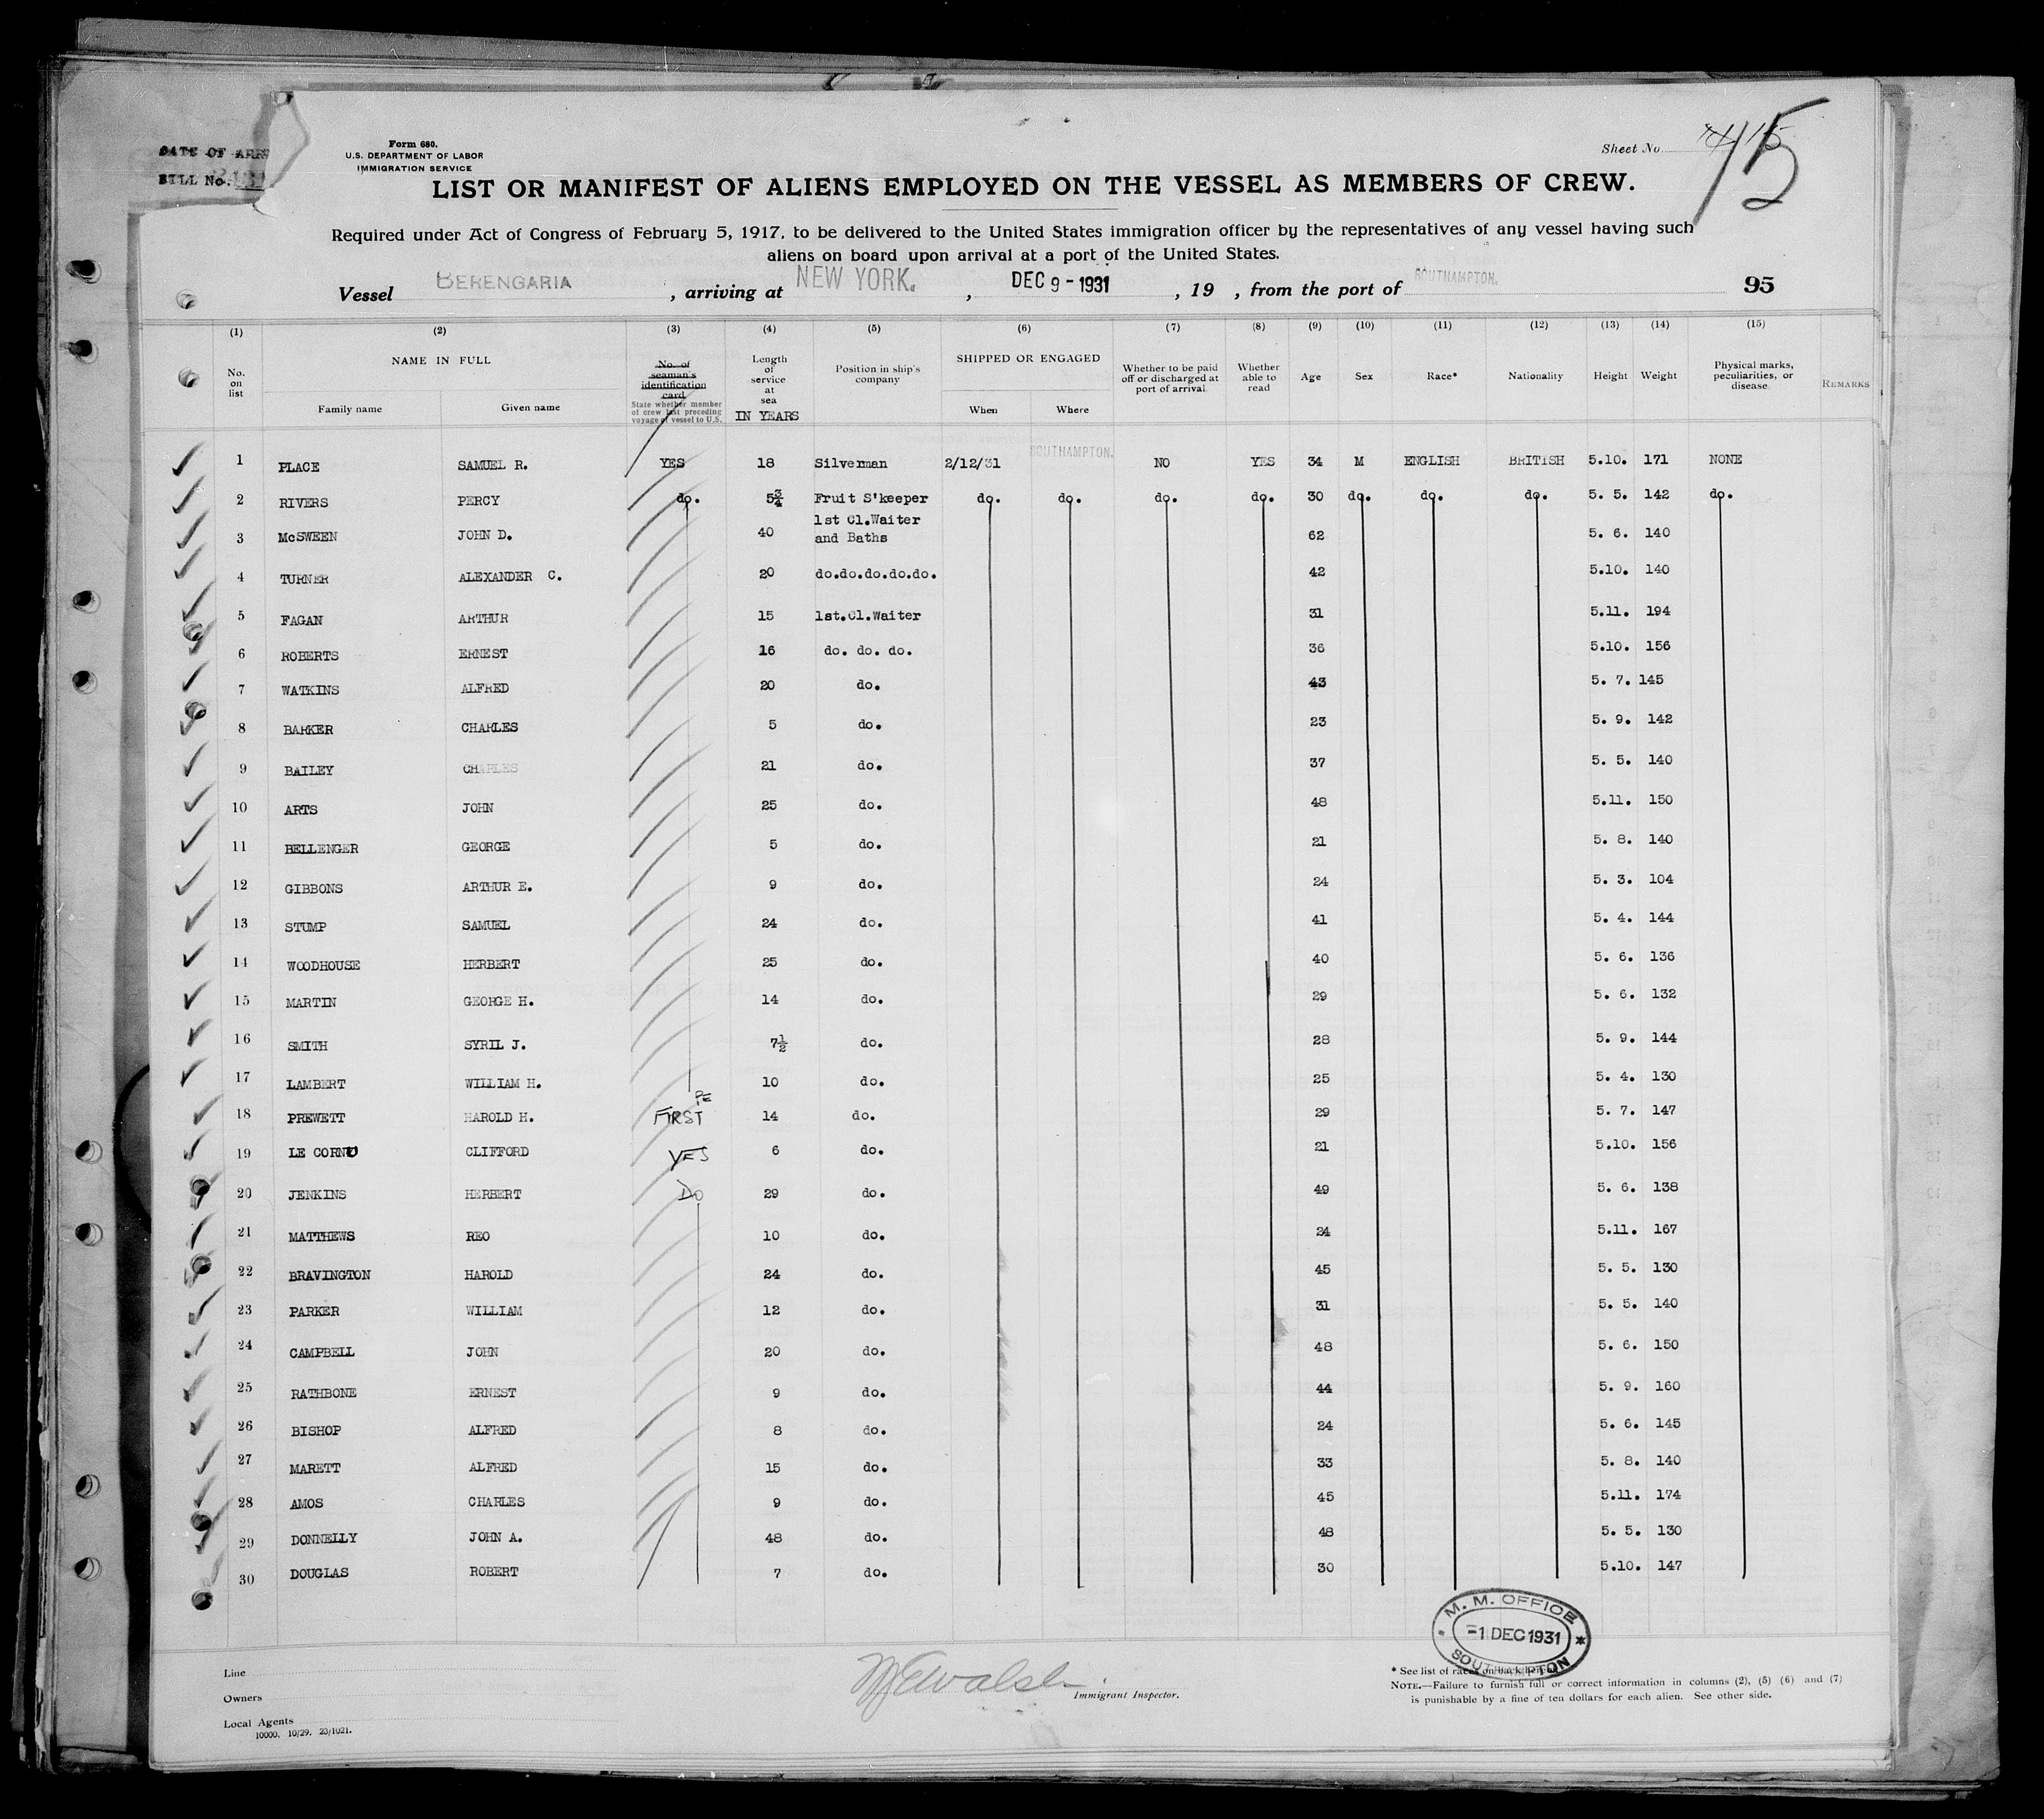 DATE OF ARR
BILL No.
Form 680.
U.S. DEPARTMENT OF LABOR
IMMIGRATION SERVICE
Sheet No. 15
15
LIST OR MANIFEST OF ALIENS EMPLOYED ON THE VESSEL AS MEMBERS OF CREW.
Required under Act of Congress of February 5, 1917, to be delivered to the United States immigration officer by the representatives of any vessel having such
aliens on board upon arrival at a port of the United States.
Vessel BERENGARIA, arriving at NEW YORK. , DEC 9 - 1931 , 19 , from the port of SOUTHAMPTON. 95
(1) (2) (3) (4) (5) (6) (7) (8) (9) (10) (11) (12) (13) (14) (15)
No. on list NAME IN FULL Family name Given name No. of seaman's identification card State whether member of crew last preceding voyage of vessel to U.S. Length of service at sea IN YEARS Position in ship's company SHIPPED OR ENGAGED When Where Whether to be paid off or discharged at port of arrival Whether able to read Age Sex Race* Nationality Height Weight Physical marks, peculiarities, or disease. REMARKS
1 PLACE SAMUEL R. YES 18 Silverman 2/12/31 SOUTHAMPTON. NO YES 34 M ENGLISH BRITISH 5.10. 171 NONE
2 RIVERS PERCY do. 5¾ Fruit S'keeper do. do. do. do. 30 do. do. do. 5. 5. 142 do.
3 McSWEEN JOHN D. 40 1st Cl.Waiter and Baths 62 5. 6. 140
4 TURNER ALEXANDER C. 20 do.do.do.do.do. 42 5.10. 140
5 FAGAN ARTHUR 15 1st.Cl.Waiter 31 5.11. 194
6 ROBERTS ERNEST 16 do. do. do. 36 5.10. 156
7 WATKINS ALFRED 20 do. 43 5. 7. 145
8 BARKER CHARLES 5 do. 23 5. 9. 142
9 BAILEY CHARLES 21 do. 37 5. 5. 140
10 ARTS JOHN 25 do. 48 5.11. 150
11 BELLENGER GEORGE 5 do. 21 5. 8. 140
12 GIBBONS ARTHUR E. 9 do. 24 5. 3. 104
13 STUMP SAMUEL 24 do. 41 5. 4. 144
14 WOODHOUSE HERBERT 25 do. 40 5. 6. 136
15 MARTIN GEORGE H. 14 do. 29 5. 6. 132
16 SMITH SYRIL J. 7½ do. 28 5. 9. 144
17 LAMBERT WILLIAM H. 10 do. 25 5. 4. 130
18 PREWETT HAROLD H. FIRST PE 14 do. 29 5. 7. 147
19 LE CORNU CLIFFORD YES 6 do. 21 5.10. 156
20 JENKINS HERBERT Do 29 do. 49 5. 6. 138
21 MATTHEWS REO 10 do. 24 5.11. 167
22 BRAVINGTON HAROLD 24 do. 45 5. 5. 130
23 PARKER WILLIAM 12 do. 31 5. 5. 140
24 CAMPBELL JOHN 20 do. 48 5. 6. 150
25 RATHBONE ERNEST 9 do. 44 5. 9. 160
26 BISHOP ALFRED 8 do. 24 5. 6. 145
27 MARETT ALFRED 15 do. 33 5. 8. 140
28 AMOS CHARLES 9 do. 45 5.11. 174
29 DONNELLY JOHN A. 48 do. 48 5. 5. 130
30 DOUGLAS ROBERT 7 do. 30 5.10. 147
M. M. OFFICE
-1 DEC 1931
SOUTHAMPTON
Line
Owners
Local Agents
10000. 10/29. 23/1021.
Walsh
Immigrant Inspector.
* See list of races on back hereof.
NOTE.—Failure to furnish full or correct information in columns (2), (5) (6) and (7)
is punishable by a fine of ten dollars for each alien. See other side.